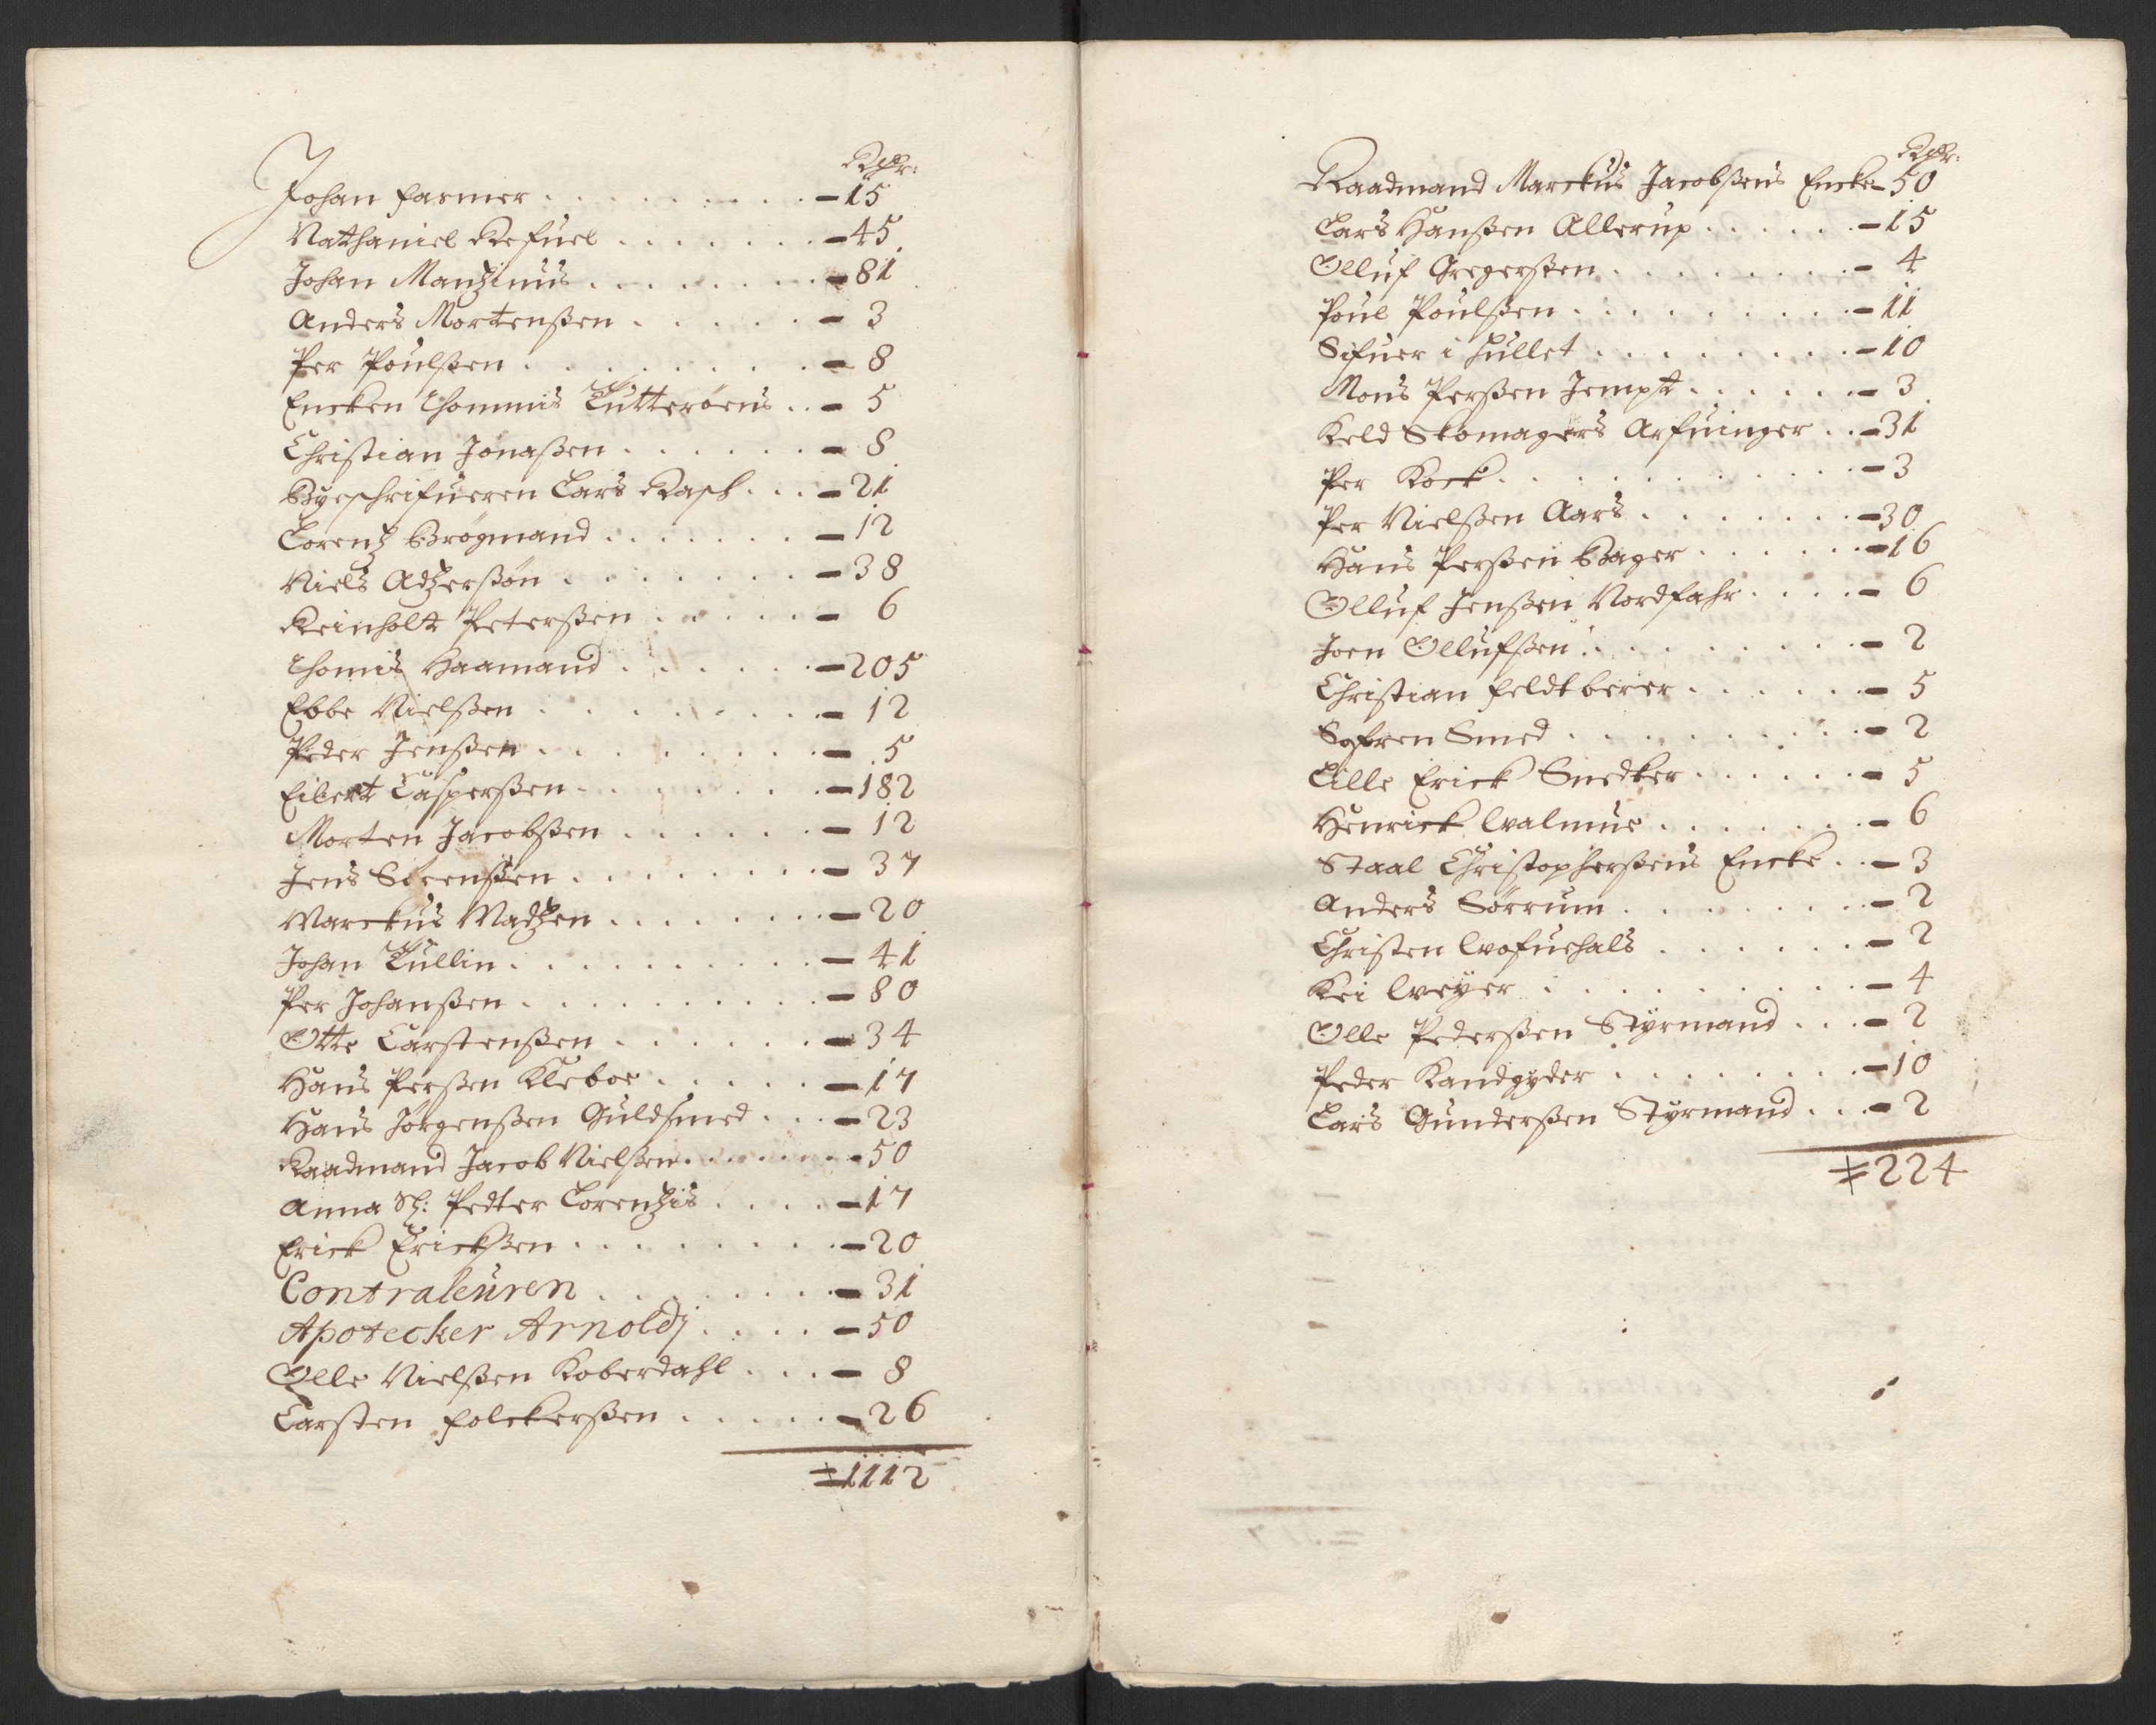 Rdr:
Johan farmer . . . . . . . . . – 15
Nathaniel Refuel . . . . . . – 45
Johan Manzinus . . . . . . . – 81
Anders Mortenßen . . . . . – 3
Per Poulßen . . . . . . . . – 8
Encken Thommis Tutteröens . . – 5
Christian Jonaßen . . . . . . – 8
Byeschrifueren Lars Rasch . . . – 21
Lorentz Brögmand . . . . . . – 12
Niels Adzerßön . . . . . . . – 38
Reinholt Peterßen . . . . . – 6
Thomis Haamand . . . . . . – 205
Ebbe Nielßen . . . . . . . . – 12
Peder Jenßen . . . . . . . . – 5
Eilert Casperßen . . . . . . . – 182
Morten Jacobßen . . . . . . – 12
Jens Sörenßen . . . . . . . . – 37
Marckus Madzen . . . . . . . – 20
Johan Tullin . . . . . . . . . – 41
Per Johanßen . . . . . . . . . – 80
Otte Carstenßen . . . . . . – 34
Hans Perßen Kleboe . . . . . – 17
Hans Jörgenßen Guldsmed . . . – 23
Raadmand Jacob Nielßen . . . . . – 50
Anna Sl: Pedter Lorentzis . . . . – 17
Erick Erickßen . . . . . . . . – 20
Contraleuren . . . . . . . – 31
Apotecker Arnoldj . . . . – 50
Olle Nielßen Koberdahl . . . – 8
Carsten folckerßen . . . . . – 26
= 1112
Rdr:
Raadmand Marckus Jacobßens Encke – 50
Lars Hanßen Allerup . . . . . . – 15
Olluf Gregerßen . . . . . . . . – 4
Poul Poulßen . . . . . . . . . – 11
Sifuer i hullet . . . . . . . . – 10
Mons Perßen Jempt . . . . . . – 3
Keld Skomagers Arfuinger . . – 31
Per Kock . . . . . . . . . . . – 3
Per Nielßen Aars . . . . . . . – 30
Hans Perßen Bager . . . . . . – 16
Olluf Jenßen Nordfahr . . . . – 6
Joen Ollufßen . . . . . . . . . – 2
Christian feldtberer . . . . . . – 5
Søfren Smed . . . . . . . . . – 2
Lille Erick Snedker . . . . . . – 5
Henrick Walmue . . . . . . . – 6
Staal Christopherßens Encke . . – 3
Anders Sörrum . . . . . . . . – 2
Christen Wofuehals . . . . . . – 2
Kei Weyer . . . . . . . . . . – 4
Olle Pederßen Styrmand . . . – 2
Peder Kandgyder . . . . . . . . – 10
Lars Gunderßen Styrmand . . . – 2
= 224